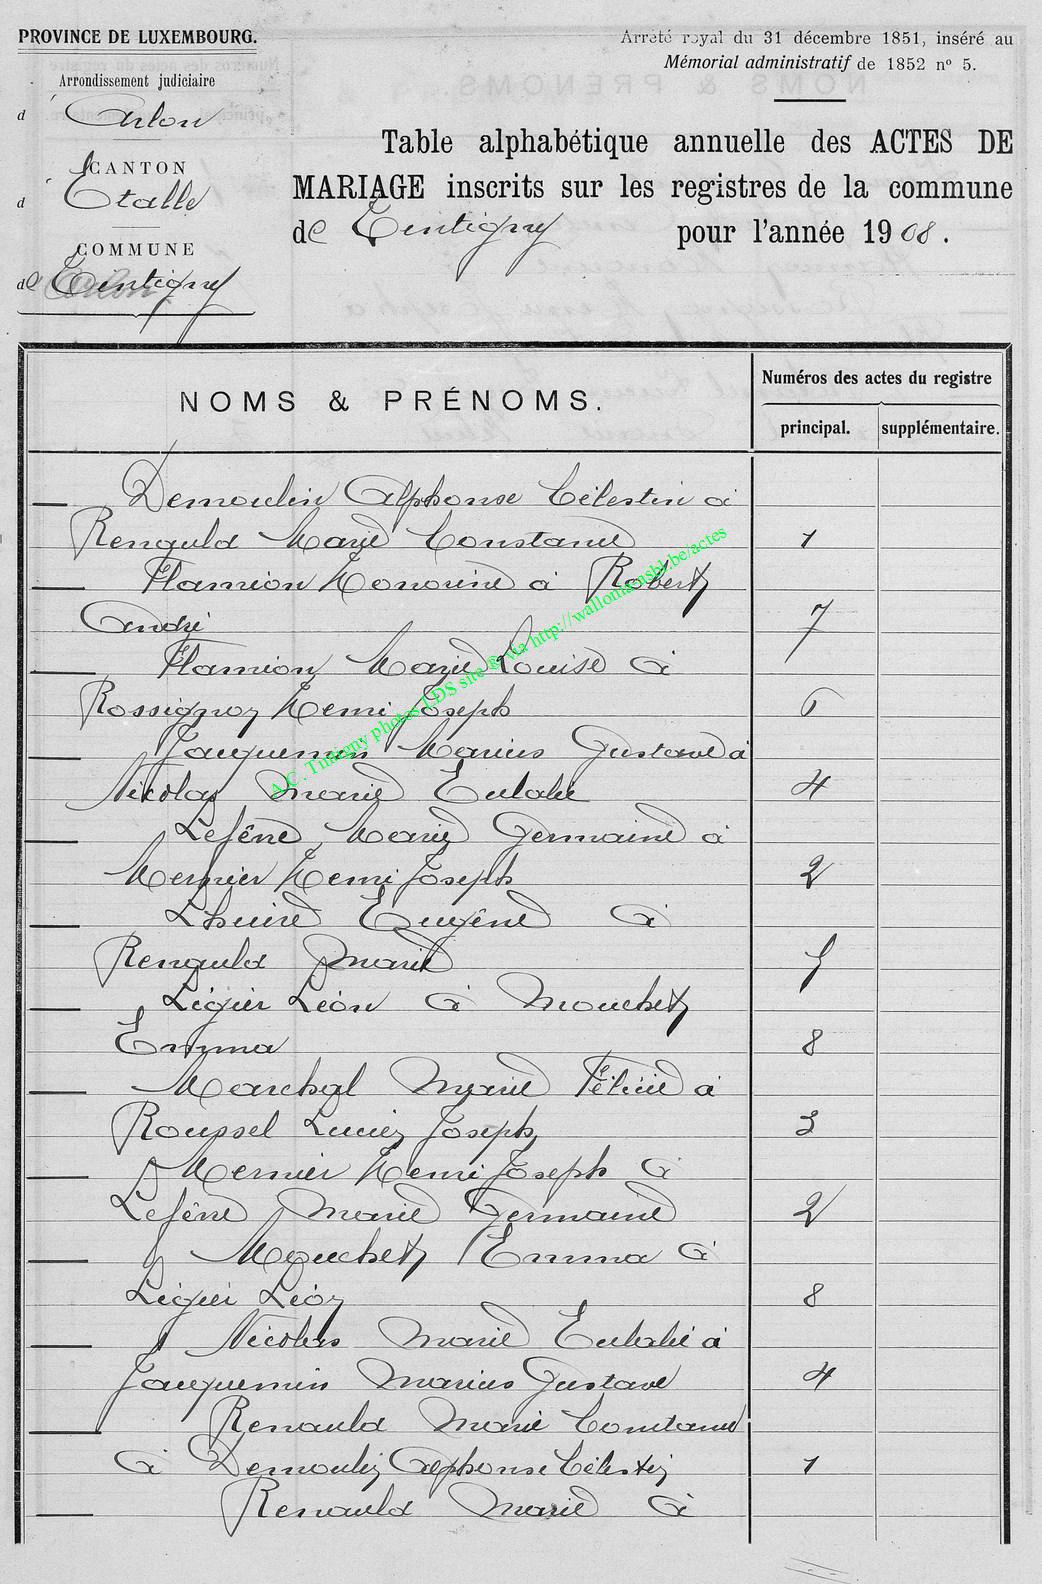 PROVINCE DE LUXEMBOURG.
Arrêté royal du 31 décembre 1851, inséré au
Mémorial administratif de 1852 nº 5.
Arrondissement judiciaire
d'Arlon
CANTON
d'Etalle
COMMUNE
de Tintigny
Table alphabétique annuelle des ACTES DE
MARIAGE inscrits sur les registres de la commune
de Tintigny pour l'année 1908.
NOMS & PRÉNOMS.
Numéros des actes du registre
principal. supplémentaire.
Demoulin Alphonse Célestin à
Renauld Marie Constance 1
Hamion Honorine à Robert
André 7
Hamion Marie Louise à
Rossignon Henri Joseph 6
Jacquemin Marius Gustave à
Nicolas Marie Eulalie 4
Lefêvre Marie Germaine à
Mernier Henri Joseph 2
Lhuire Eugène à
Renauld Marie 5
Ligier Léon à Mouchet
Emma 8
Marchal Marie Félicie à
Roussel Lucien Joseph 3
Mernier Henri Joseph à
Lefêvre Marie Germaine 2
Mouchet Emma à
Ligier Léon 8
Nicolas Marie Eulalie à
Jacquemin Marius Gustave 4
Renauld Marie Constance
à Demoulin Alphonse Célestin 1
Renauld Marie à
A.C. Tintigny photos LDS site ® via http://wallonia.asbl.be/actes